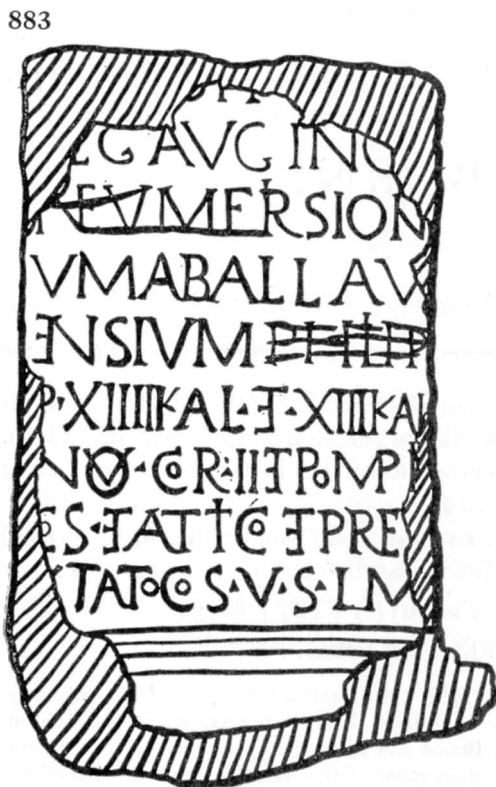 883
AVG IN
VMERSION
VMABALLAV
ENSIVM
P·XIIIIKAL·E·XIIIIKAL
NO·COR·II ETPOMP
ES·EATTICO ETPRE
TATO·COS·V·S·LM